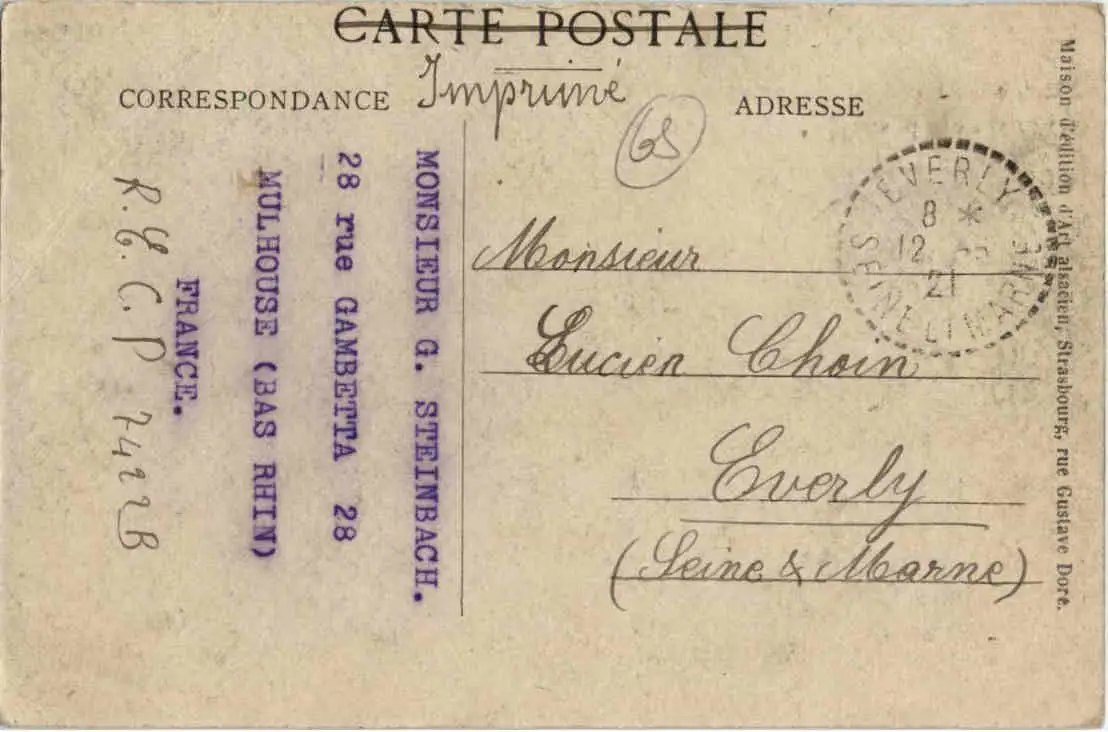 CARTE POSTALE
Imprimé
CORRESPONDANCE
ADRESSE
68
MONSIEUR G. STEINBACH.
28 rue GAMBETTA 28
MULHOUSE (BAS RHIN)
FRANCE.
C. P 7422B
EVERLY
8 *
12
21
SEINE ET MARNE
Monsieur
Lucien Choin
Everly
(Seine & Marne)
Maison d'édition d'Art alsacien, Strasbourg, rue Gustave Doré.